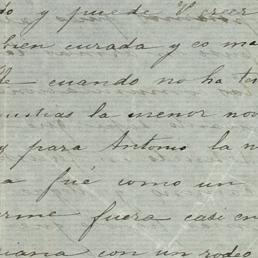 do y puede V. creer
bien curada y es ma
lle cuando no ha ten
ustias la menor nov
y para Antonio la n
a fué como un
rme fuera casi en
iana con un rodeo